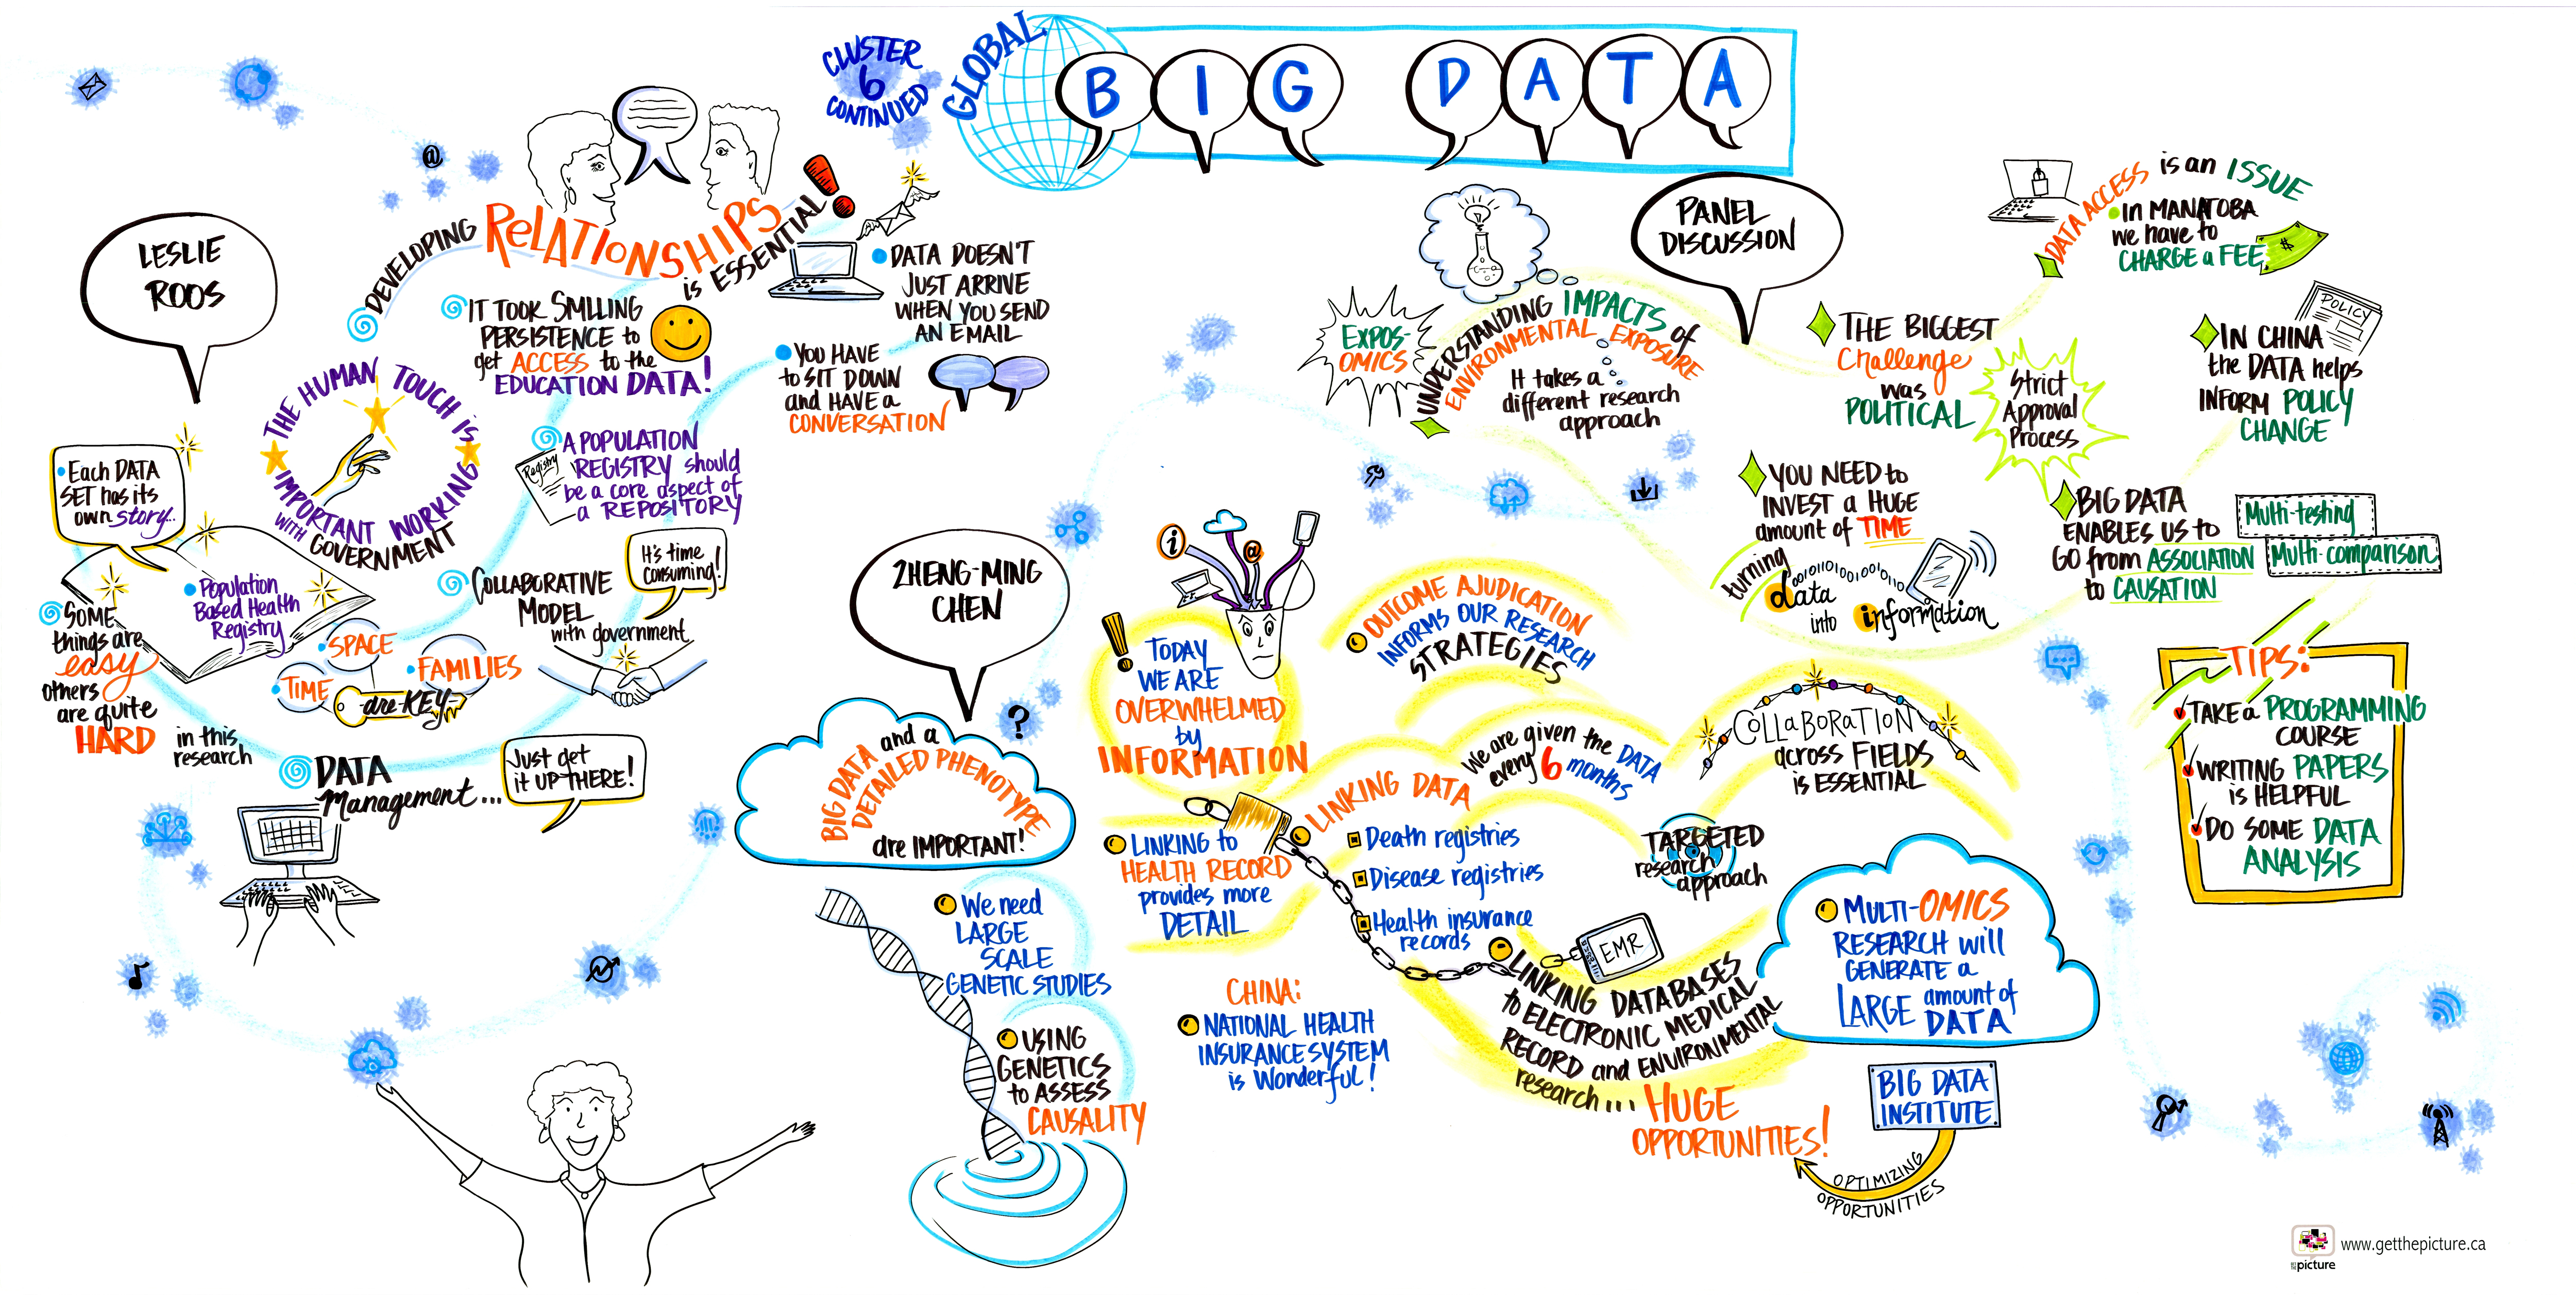 CLUSTER
6
CONTINUED
GLOBAL
BIG DATA
LESLIE
ROOS
DEVELOPING RELATIONSHIPS is ESSENTIAL!
IT TOOK SMILING
PERSISTENCE to
get ACCESS to the
EDUCATION DATA!
DATA DOESN'T
JUST ARRIVE
WHEN YOU SEND
AN EMAIL
YOU HAVE
to SIT DOWN
and HAVE a
CONVERSATION
THE HUMAN TOUCH IS
IMPORTANT WORKING
WITH GOVERNMENT
Registry
A POPULATION
REGISTRY should
be a core aspect of
a REPOSITORY
Each DATA
SET has its
own story...
Population
Based Health
Registry
SOME
things are
easy
others
are quite
HARD
in this
research
TIME
SPACE
FAMILIES
are KEY
COLLABORATIVE
MODEL
with government
It's time
consuming!
DATA
Management...
Just get
it UP THERE!
ZHENG-MING
CHEN
BIG DATA and a
DETAILED PHENOTYPE
are IMPORTANT!
We need
LARGE
SCALE
GENETIC STUDIES
USING
GENETICS
to ASSESS
CAUSALITY
?
@
i
@
! TODAY
WE ARE
OVERWHELMED
by
INFORMATION
OUTCOME AJUDICATION
INFORMS OUR RESEARCH
STRATEGIES
We are given the DATA
every 6 months
COLLABORATION
across FIELDS
is ESSENTIAL
LINKING to
HEALTH RECORD
provides more
DETAIL
LINKING DATA
Death registries
Disease registries
Health insurance
records
TARGETED
research
approach
CHINA:
NATIONAL HEALTH
INSURANCE SYSTEM
is Wonderful!
EMR
LINKING DATABASES
to ELECTRONIC MEDICAL
RECORD and ENVIRONMENTAL
research...
HUGE
OPPORTUNITIES!
MULTI-OMICS
RESEARCH will
GENERATE a
LARGE amount of
DATA
BIG DATA
INSTITUTE
OPTIMIZING
OPPORTUNITIES
PANEL
DISCUSSION
EXPOS-
OMICS
UNDERSTANDING IMPACTS of
ENVIRONMENTAL EXPOSURE
It takes a
different research
approach
THE BIGGEST
Challenge
was
POLITICAL
Strict
Approval
Process
DATA ACCESS is an ISSUE
In MANATOBA
we have to
CHARGE a FEE
$
POLICY
IN CHINA
the DATA helps
INFORM POLICY
CHANGE
YOU NEED to
INVEST a HUGE
amount of TIME
turning
data
into information
BIG DATA
ENABLES US to
GO from ASSOCIATION
to CAUSATION
Multi-testing
Multi-comparison
TIPS:
TAKE a PROGRAMMING
COURSE
WRITING PAPERS
is HELPFUL
DO SOME DATA
ANALYSIS
picture
www.getthepicture.ca